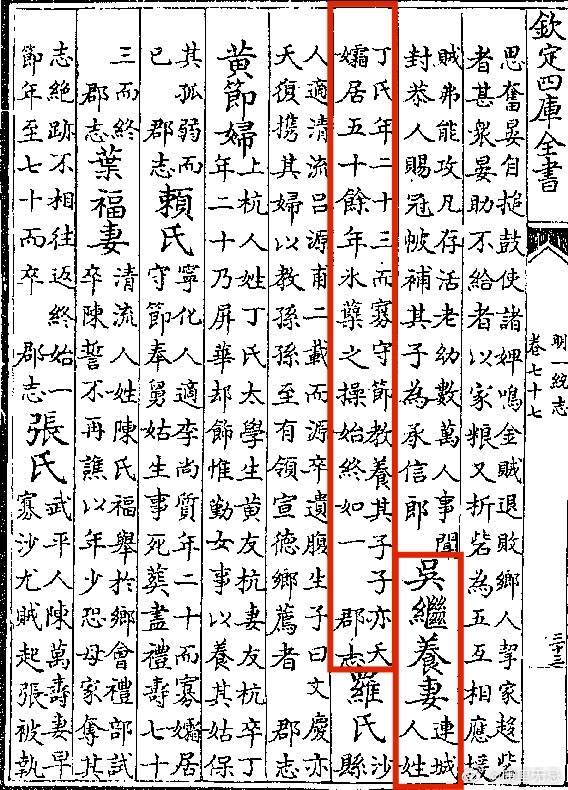 欽定四庫全書
明一統志
卷七十七
三十三
思奮晏自搥鼓使諸婢鳴金賊退敗鄉人挈家趨砦
者甚衆晏助不給者以家粮又折砦為五互相應援
賊弗能攻凡存活老幼數萬人事聞
封恭人賜冠帔補其子為承信郎
吳繼養妻
連城
人姓
丁氏年二十三而寡守節教養其子子亦夭
孀居五十餘年氷蘗之操始終如一 郡志
羅氏
沙
縣
人適清流呂源甫二載而源卒遺腹生子曰文慶亦
夭復携其婦以教孫孫至有領宣德鄉薦者 郡志
黃節婦
上杭人姓丁氏太學生黃友杭妻友杭卒丁
年二十乃屏華却飾惟勤女事以養其姑保
其孤弱而
已 郡志
賴氏
寧化人適李尚質年二十而寡孀居
守節奉舅姑生事死葬盡禮壽七十
三而終
郡志
葉福妻
清流人姓陳氏福舉於鄉會禮部試
卒陳誓不再醮以年少恐母家奪其
志絕跡不相往返終始一
節年至七十而卒 郡志
張氏
武平人陳萬壽妻早
寡沙尤賊起張被執